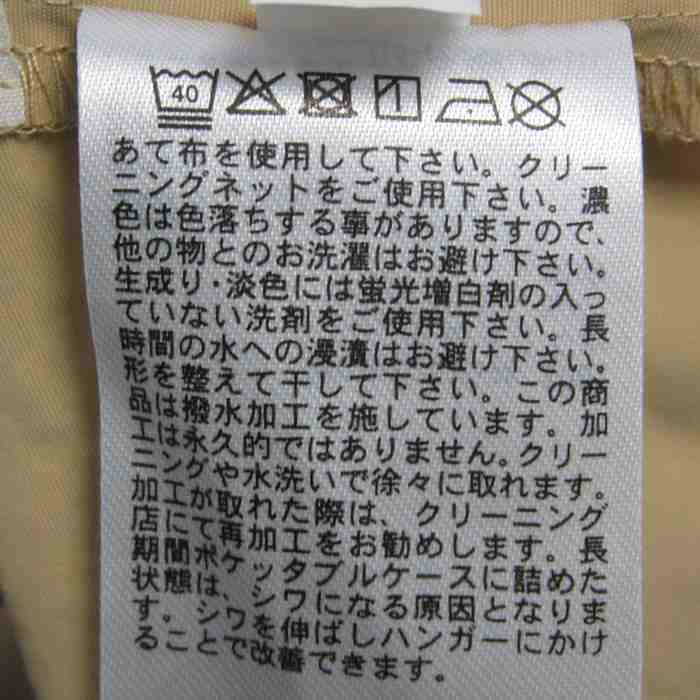 40
あて布を使用して下さい。クリー
ニングネットをご使用下さい。濃
色は色落ちする事がありますので、
他の物とのお洗濯はお避け下さい。
生成り・淡色には蛍光増白剤の入っ
ていない洗剤をご使用下さい。長
時間の水への浸漬はお避け下さい。
形を整えて干して下さい。この商
品は撥水加工を施しています。加
工は永久的ではありません。クリー
ニングや水洗いで徐々に取れます。
加工が取れた際は、クリーニング
店にて再加工をお勧めします。長
期間ポケッタブルケースに詰めた
状態は、シワになる原因となりま
す。シワを伸ばしハンガーにかけ
ることで改善できます。